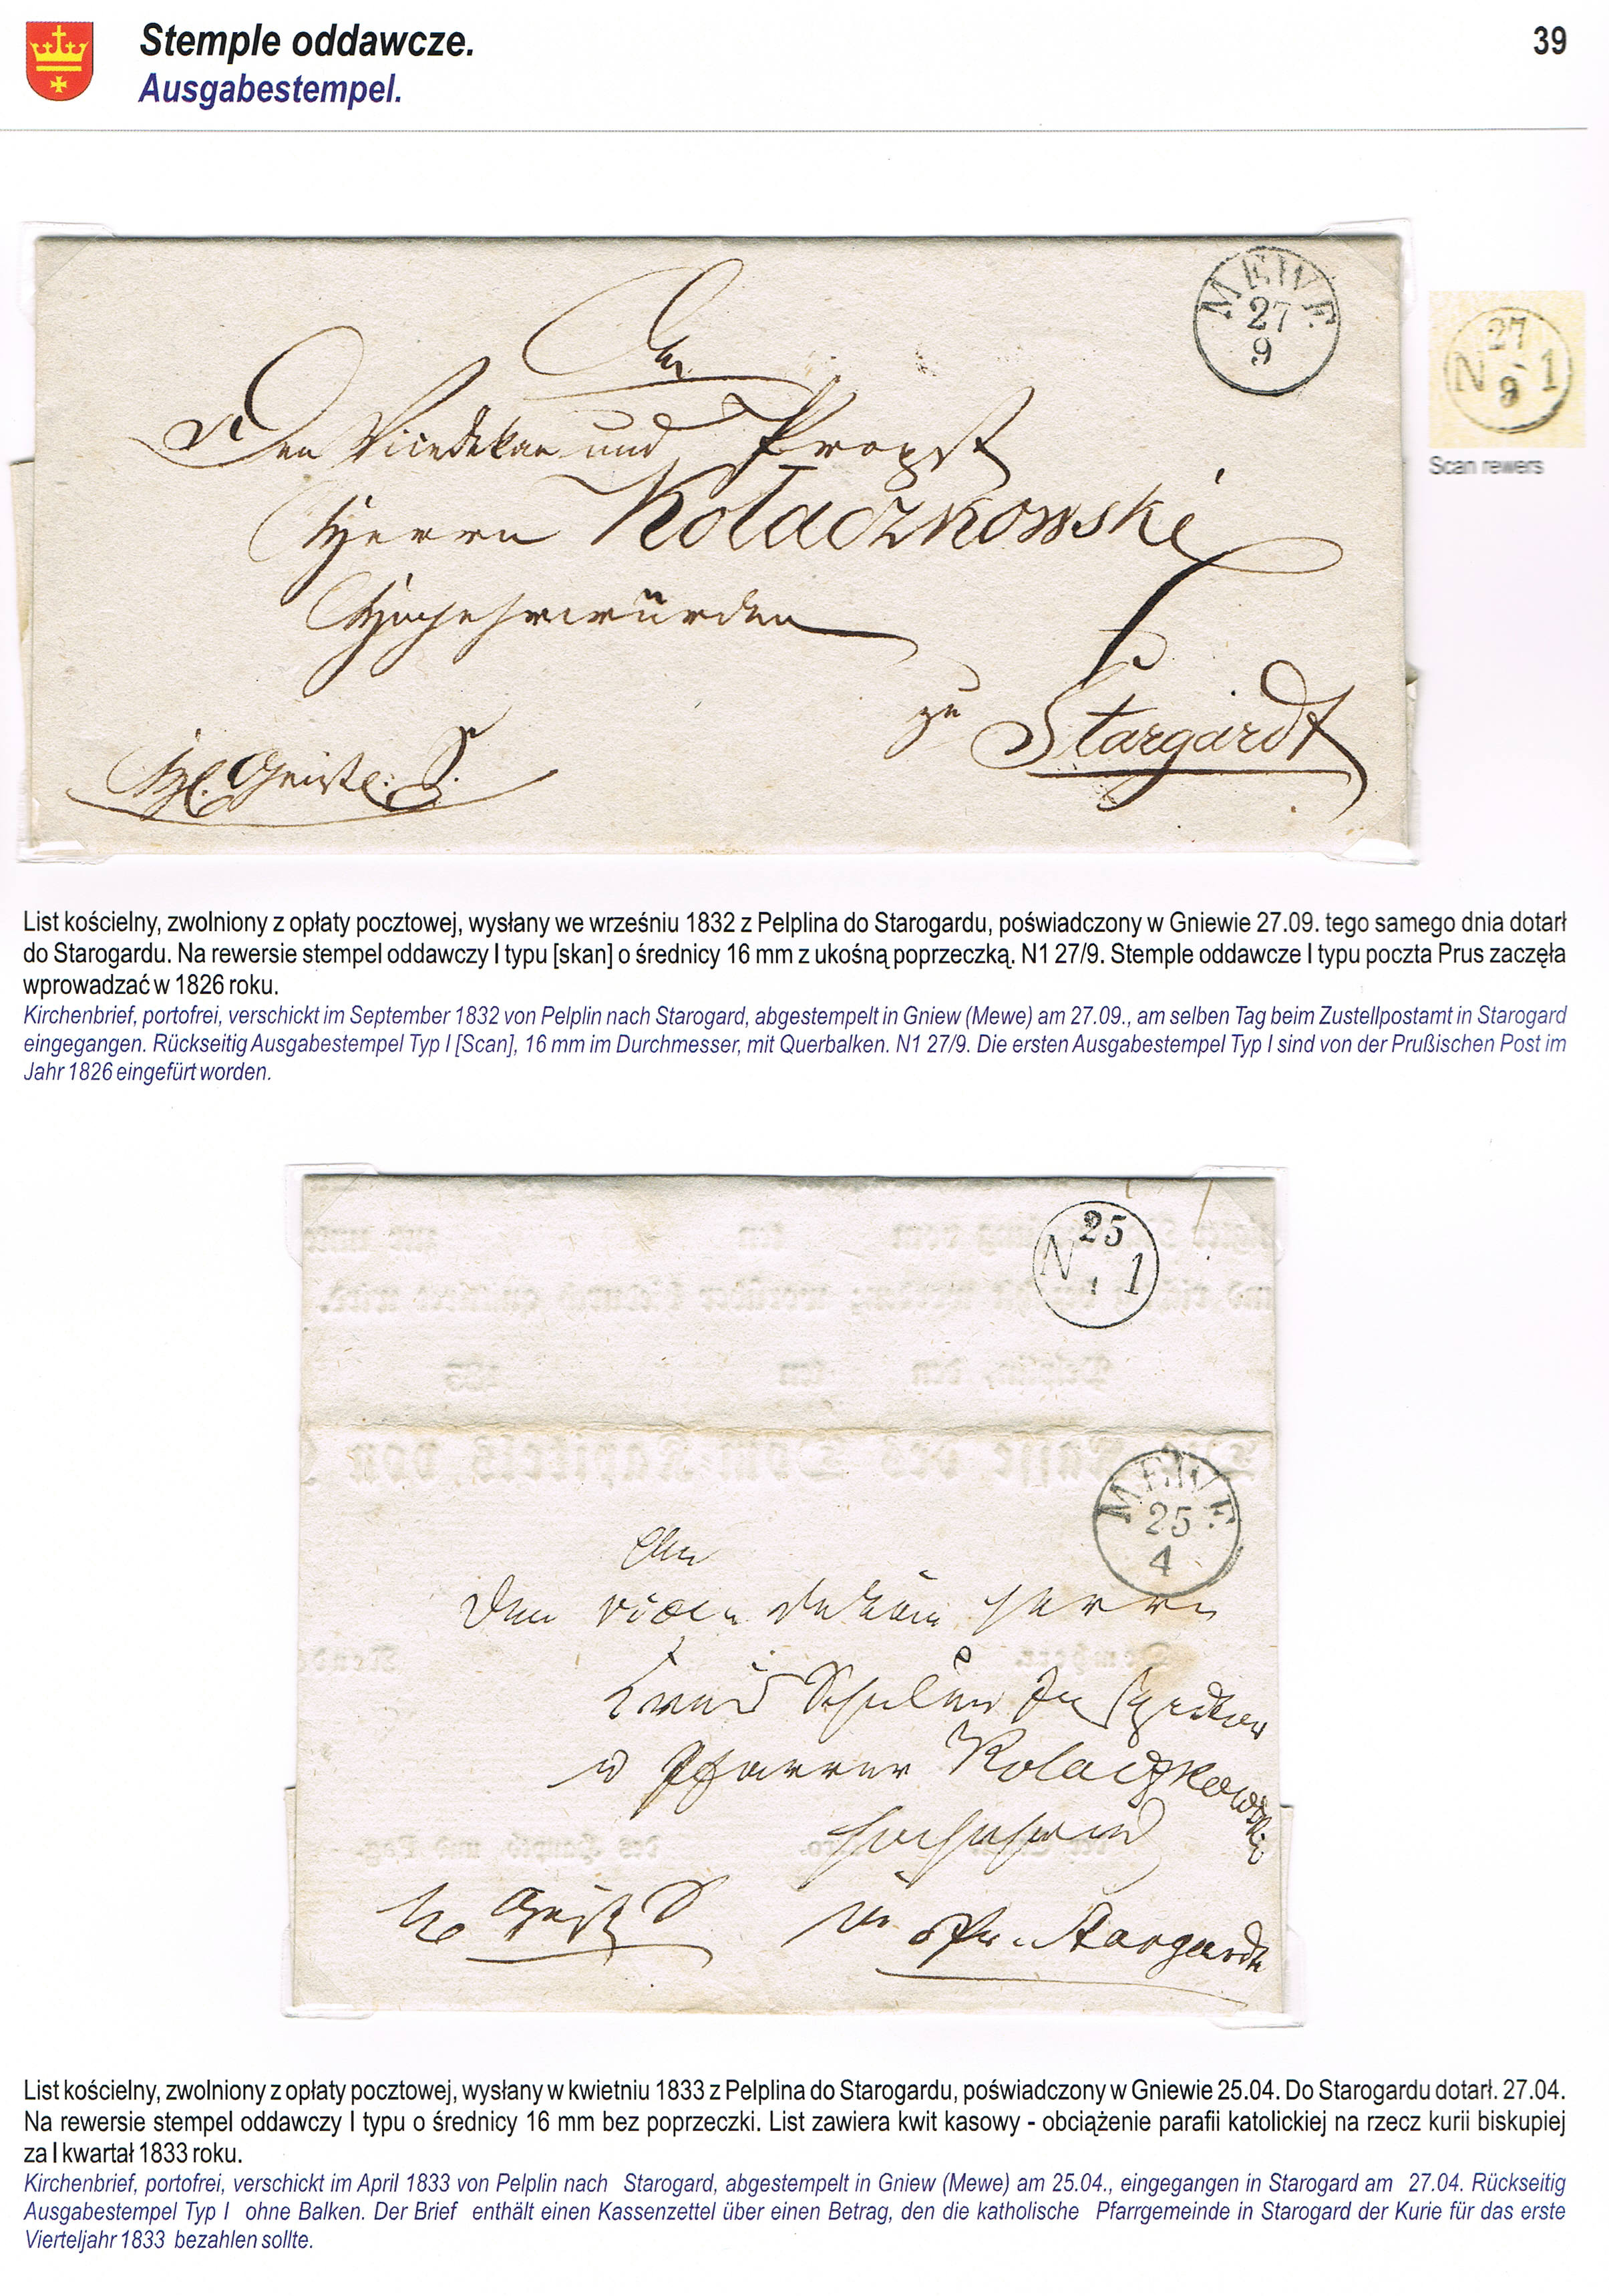 Stemple oddawcze.
39
Ausgabestempel.
MEWE
27
9
27
N 1
9
Scan rewers
An
Den Vicedekan und Propst
Herrn Kolaczkowski
Hochehrwürden
zu Stargardt
List kościelny, zwolniony z opłaty pocztowej, wysłany we wrześniu 1832 z Pelplina do Starogardu, poświadczony w Gniewie 27.09. tego samego dnia dotarł
do Starogardu. Na rewersie stempel oddawczy I typu [skan] o średnicy 16 mm z ukośną poprzeczką. N1 27/9. Stemple oddawcze I typu poczta Prus zaczęła
wprowadzać w 1826 roku.
Kirchenbrief, portofrei, verschickt im September 1832 von Pelplin nach Starogard, abgestempelt in Gniew (Mewe) am 27.09., am selben Tag beim Zustellpostamt in Starogard
eingegangen. Rückseitig Ausgabestempel Typ I [Scan], 16 mm im Durchmesser, mit Querbalken. N1 27/9. Die ersten Ausgabestempel Typ I sind von der Prußischen Post im
Jahr 1826 eingefürt worden.
25
N 1
MEWE
25
4
An
Den Herrn
Kreis Schulen
Pfarrer Kolaczkowski
Pr. Stargardt
List kościelny, zwolniony z opłaty pocztowej, wysłany w kwietniu 1833 z Pelplina do Starogardu, poświadczony w Gniewie 25.04. Do Starogardu dotarł. 27.04.
Na rewersie stempel oddawczy I typu o średnicy 16 mm bez poprzeczki. List zawiera kwit kasowy - obciążenie parafii katolickiej na rzecz kurii biskupiej
za I kwartał 1833 roku.
Kirchenbrief, portofrei, verschickt im April 1833 von Pelplin nach Starogard, abgestempelt in Gniew (Mewe) am 25.04., eingegangen in Starogard am 27.04. Rückseitig
Ausgabestempel Typ I ohne Balken. Der Brief enthält einen Kassenzettel über einen Betrag, den die katholische Pfarrgemeinde in Starogard der Kurie für das erste
Vierteljahr 1833 bezahlen sollte.